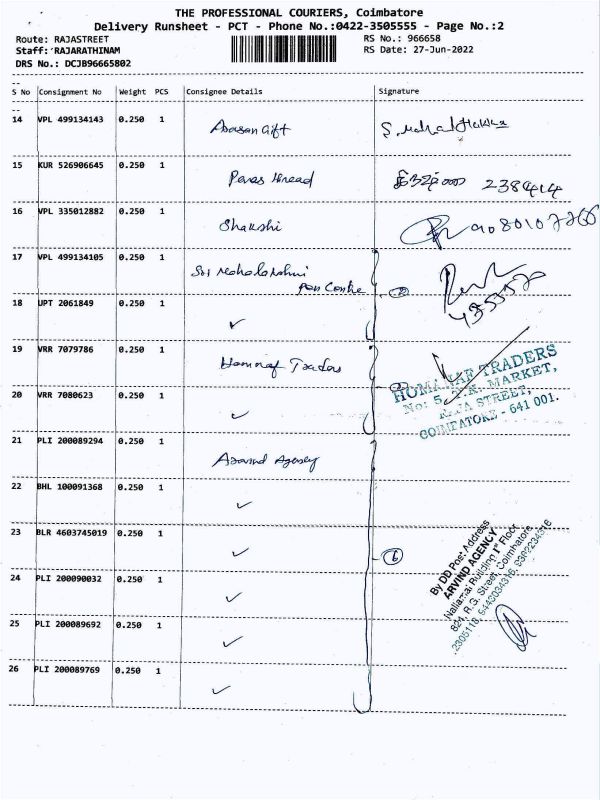 THE PROFESSIONAL COURIERS, Coimbatore
Delivery Runsheet - PCT - Phone No.:0422-3505555 - Page No.:2
Route: RAJASTREET RS No.: 966658
Staff: RAJARATHINAM RS Date: 27-Jun-2022
DRS No.: DCJB96665802
S No Consignment No Weight PCS Consignee Details Signature
14 VPL 499134143 0.250 1
15 KUR 526906645 0.250 1 238414
16 VPL 335012882 0.250 1 Shakshi
17 VPL 499134105 0.250 1 Sri Mahalakshmi
Pen Centre 2
18 UPT 2061849 0.250 1 ✓
19 VRR 7079786 0.250 1 Homnaf Traders
20 VRR 7080623 0.250 1 ✓
HOMANAF TRADERS
No: 5, T.K. MARKET,
RAJA STREET,
COIMBATORE - 641 001.
21 PLI 200089294 0.250 1 Aravind Agency
22 BHL 100091368 0.250 1 ✓
23 BLR 4603745019 0.250 1 ✓ 6
24 PLI 200090032 0.250 1 ✓
25 PLI 200089692 0.250 1 ✓
26 PLI 200089769 0.250 1 ✓
By DD Post Address
ARVIND AGENCY
Building 1st Floor
R.G. Street, Coimbatore